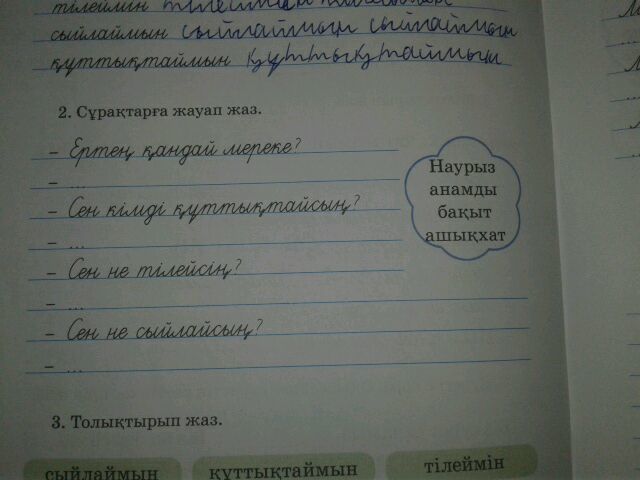 тілеймін тілеймін
сыйлаймын сыйлаймын сыйлаймын
құттықтаймын құттықтаймын
2. Сұрақтарға жауап жаз.
– Ертең қандай мереке?
– ...
– Сен кімді құттықтайсың?
– ...
– Сен не тілейсің?
– ...
– Сен не сыйлайсың?
– ...
Наурыз
анамды
бақыт
ашықхат
3. Толықтырып жаз.
сыйлаймын құттықтаймын тілеймін